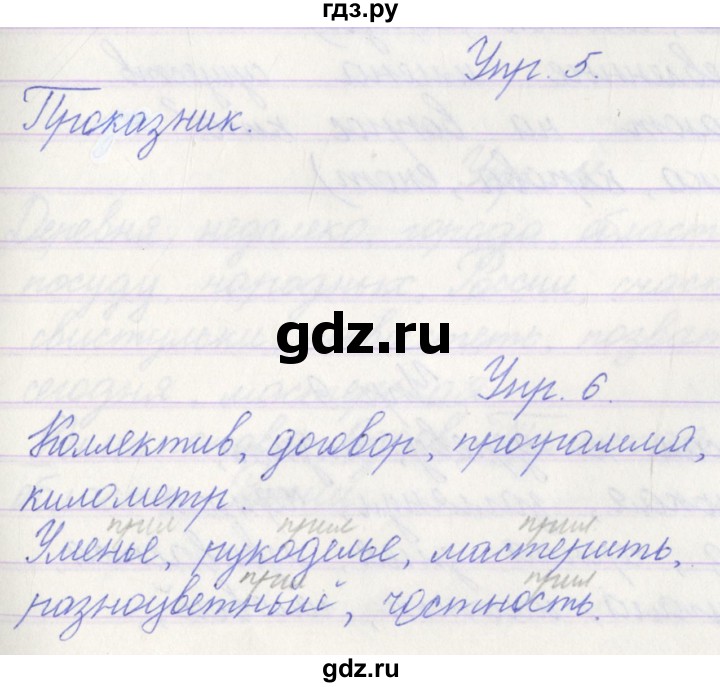 гдз.ру
Упр. 5.
Проказник.
gdz.ru
Упр. 6.
Коллектив, договор, программа,
километр.
прил прил прил
Уменье, рукоделье, мастерить,
прил прил
разноцветный, честность.
gdz.ru